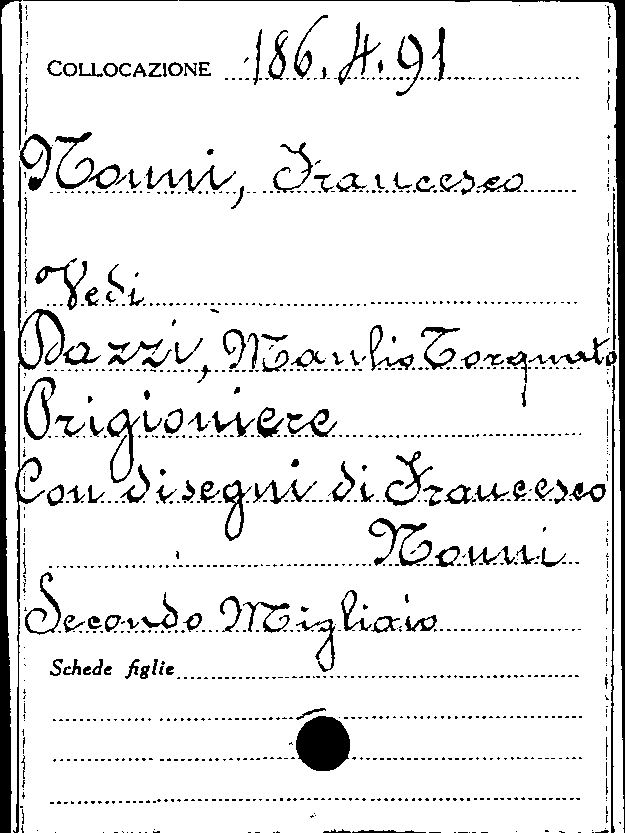 COLLOCAZIONE 186.4.91
Nonni, Francesco
Vedi
Dazzi, Manlio Torquato
Prigioniere
Con disegni di Francesco
Nonni
Secondo Migliaio
Schede figlie